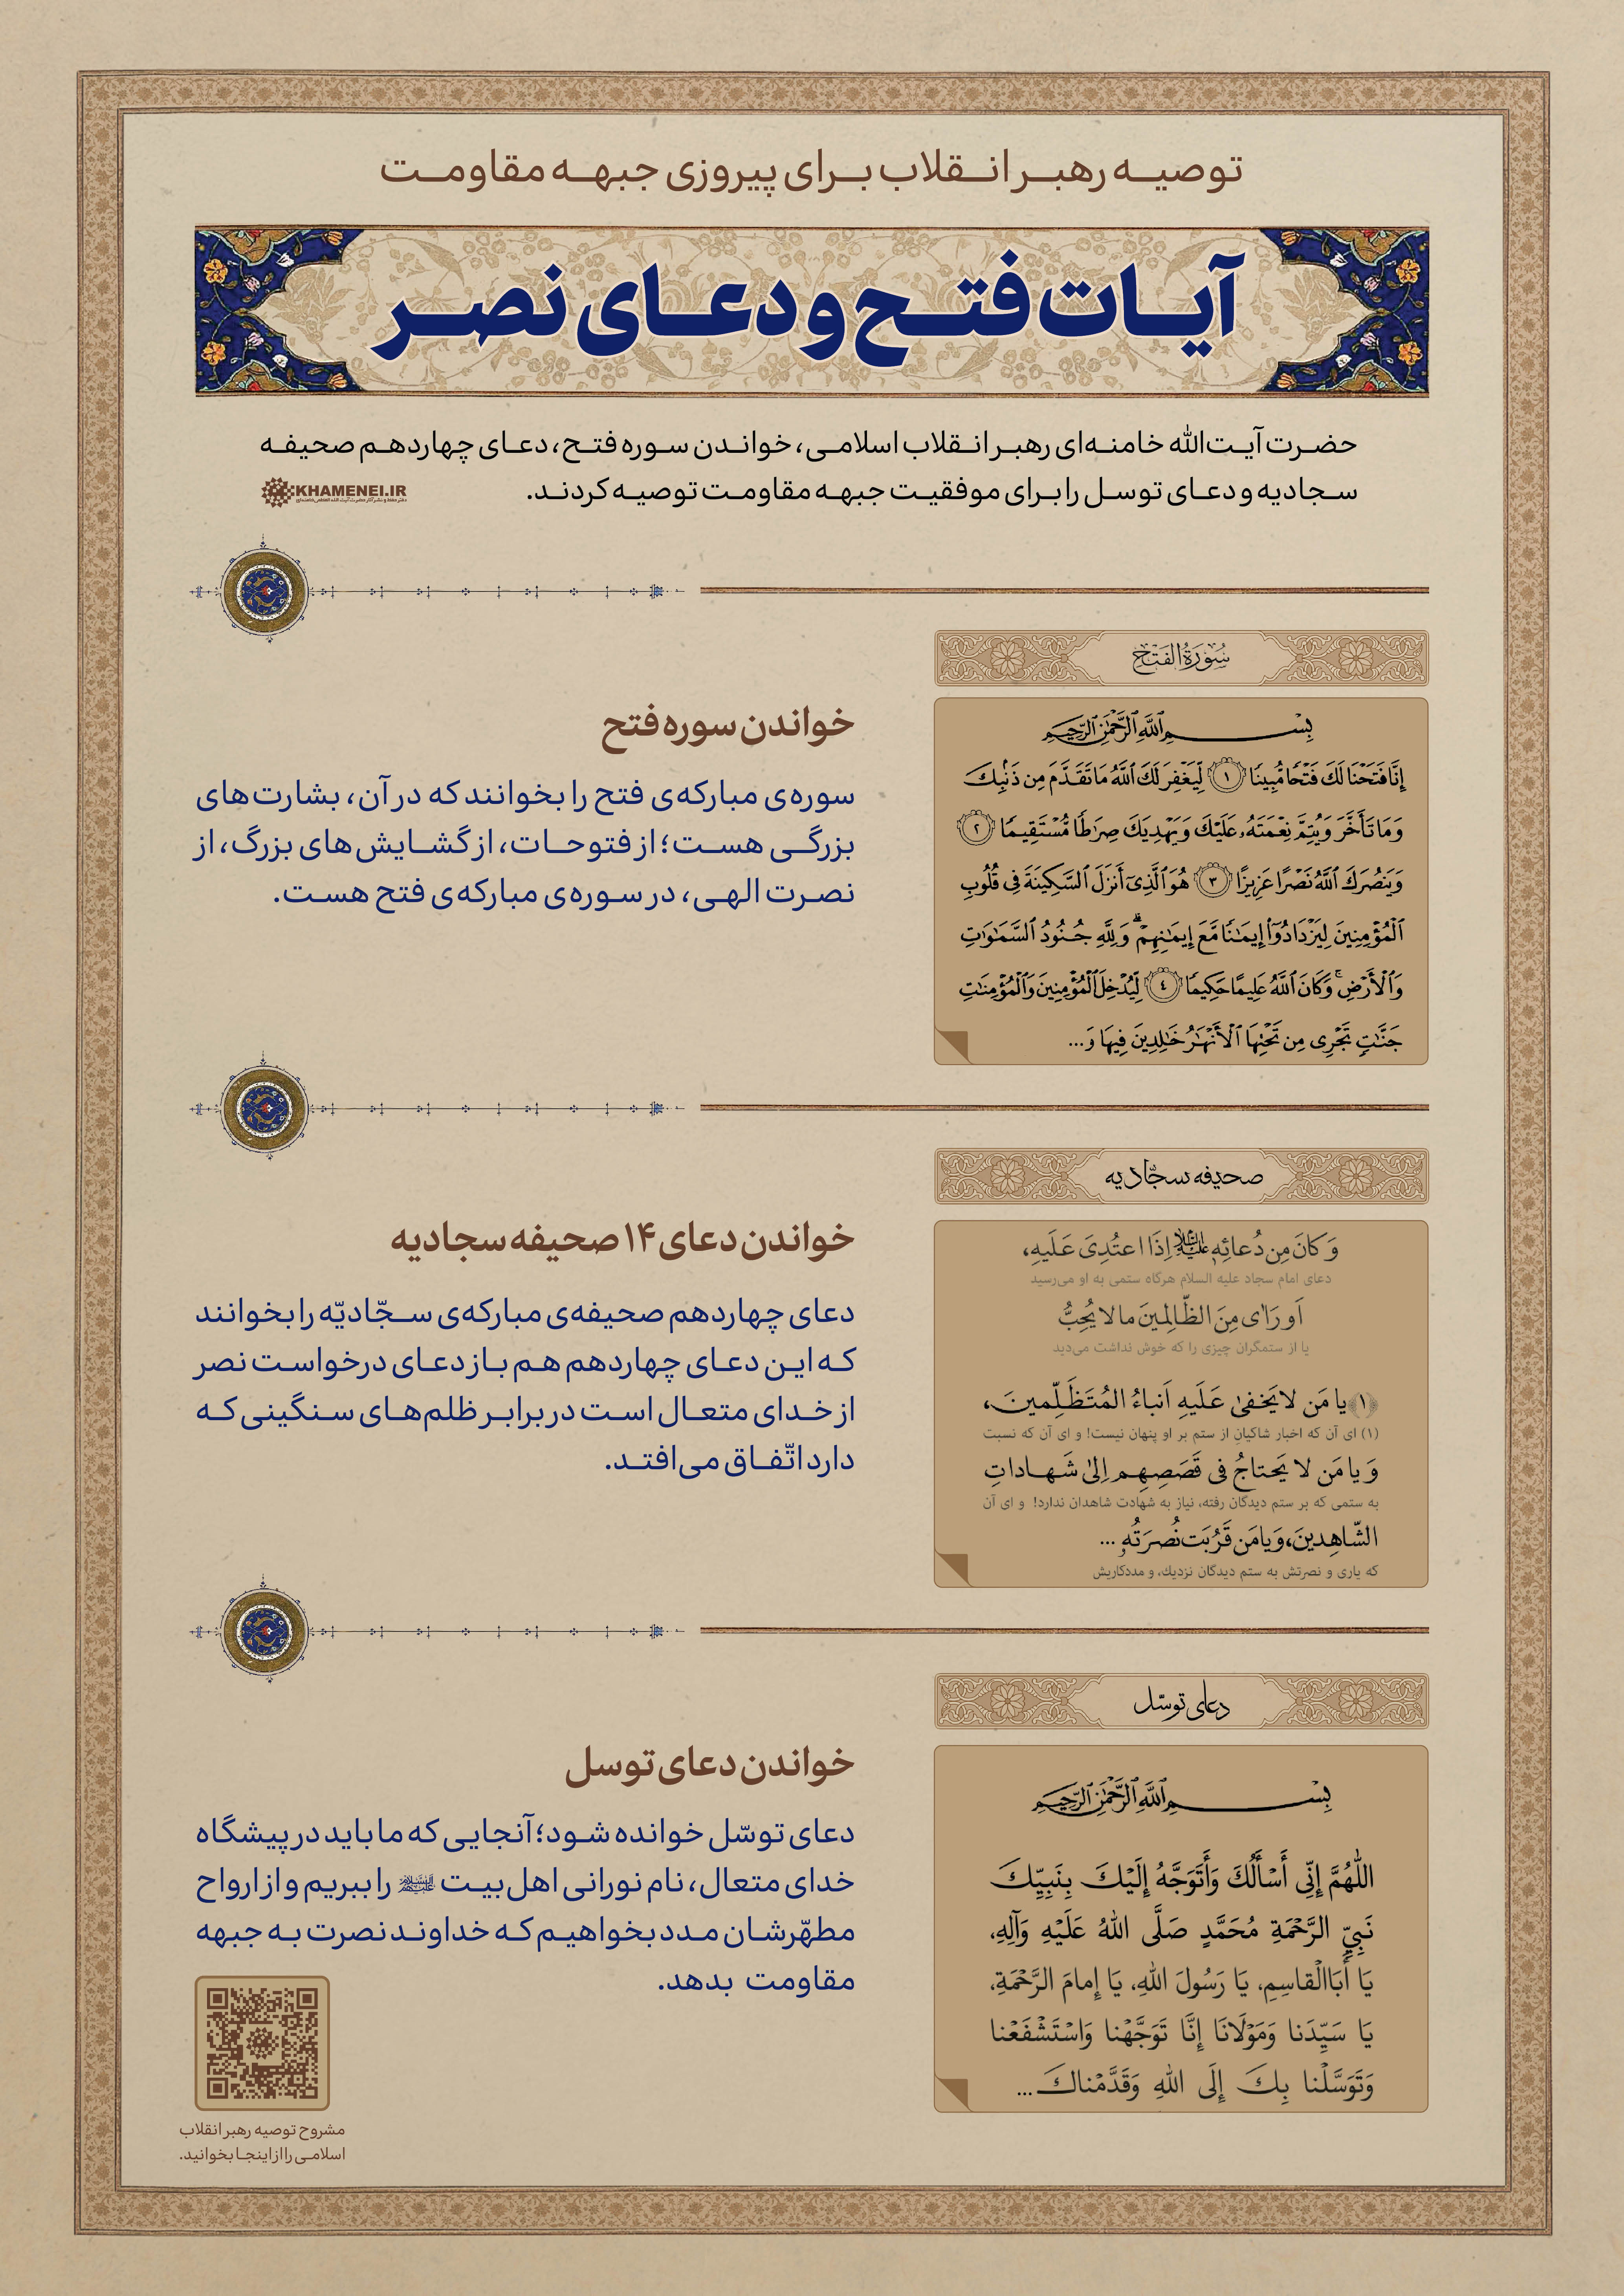 توصیه رهبر انقلاب برای پیروزی جبهه مقاومت
آیات فتح و دعای نصر
حضرت آیت‌الله خامنه‌ای رهبر انقلاب اسلامی، خواندن سوره فتح، دعای چهاردهم صحیفه
سجادیه و دعای توسل را برای موفقیت جبهه مقاومت توصیه کردند.
KHAMENEI.IR
سُورَةُ الفَتْحِ
بِسْمِ ٱللَّهِ ٱلرَّحْمَٰنِ ٱلرَّحِيمِ
إِنَّا فَتَحْنَا لَكَ فَتْحًا مُّبِينًا ١ لِّيَغْفِرَ لَكَ ٱللَّهُ مَا تَقَدَّمَ مِن ذَنۢبِكَ
وَمَا تَأَخَّرَ وَيُتِمَّ نِعْمَتَهُۥ عَلَيْكَ وَيَهْدِيَكَ صِرَٰطًا مُّسْتَقِيمًا ٢
وَيَنصُرَكَ ٱللَّهُ نَصْرًا عَزِيزًا ٣ هُوَ ٱلَّذِىٓ أَنزَلَ ٱلسَّكِينَةَ فِى قُلُوبِ
ٱلْمُؤْمِنِينَ لِيَزْدَادُوٓا۟ إِيمَٰنًا مَّعَ إِيمَٰنِهِمْ ۗ وَلِلَّهِ جُنُودُ ٱلسَّمَٰوَٰتِ
وَٱلْأَرْضِ ۚ وَكَانَ ٱللَّهُ عَلِيمًا حَكِيمًا ٤ لِّيُدْخِلَ ٱلْمُؤْمِنِينَ وَٱلْمُؤْمِنَٰتِ
جَنَّٰتٍ تَجْرِى مِن تَحْتِهَا ٱلْأَنْهَٰرُ خَٰلِدِينَ فِيهَا وَ...
خواندن سوره فتح
سوره‌ی مبارکه‌ی فتح را بخوانند که در آن، بشارت‌های
بزرگی هست؛ از فتوحات، از گشایش‌های بزرگ، از
نصرت الهی، در سوره‌ی مبارکه‌ی فتح هست.
صحیفه سجّادیه
وَ كانَ مِن دُعائِهِ عَلَيْهِ السَّلام اِذَا اعتُدِىَ عَلَيهِ،
دعای امام سجاد علیه السلام هرگاه ستمی به او می‌رسید
اَو رَاٰى مِنَ الظّالِمينَ ما لا يُحِبُّ
یا از ستمگران چیزی را که خوش نداشت می‌دید
﴿١﴾ يا مَن لا يَخفىٰ عَلَيهِ اَنباءُ المُتَظَلِّمينَ،
(۱) ای آن که اخبار شاکیانِ از ستم بر او پنهان نیست! و ای آن که نسبت
وَ يا مَن لا يَحتاجُ فى قَصَصِهِم اِلىٰ شَهاداتِ
به ستمی که بر ستم دیدگان رفته، نیاز به شهادت شاهدان ندارد! و ای آن
الشّاهِدينَ، وَ يا مَن قَرُبَت نُصرَتُهُ ...
که یاری و نصرتش به ستم دیدگان نزدیك، و مددکاریش
خواندن دعای ۱۴ صحیفه سجادیه
دعای چهاردهم صحیفه‌ی مبارکه‌ی سجّادیّه را بخوانند
که این دعای چهاردهم هم باز دعای درخواست نصر
از خدای متعال است در برابر ظلم‌های سنگینی که
دارد اتّفاق می‌افتد.
دعای توسّل
بِسْمِ ٱللَّهِ ٱلرَّحْمَٰنِ ٱلرَّحِيمِ
اللّٰهُمَّ إِنِّى أَسْأَلُكَ وَأَتَوَجَّهُ إِلَيْكَ بِنَبِيِّكَ
نَبِيِّ الرَّحْمَةِ مُحَمَّدٍ صَلَّى اللهُ عَلَيْهِ وَآلِهِ،
يَا أَبَاالْقاسِمِ، يَا رَسُولَ اللهِ، يَا إِمامَ الرَّحْمَةِ،
يَا سَيِّدَنا وَمَوْلَانَا إِنَّا تَوَجَّهْنا وَاسْتَشْفَعْنا
وَتَوَسَّلْنا بِكَ إِلَى اللهِ وَقَدَّمْناكَ...
خواندن دعای توسل
دعای توسّل خوانده شود؛ آنجایی که ما باید در پیشگاه
خدای متعال، نام نورانی اهل‌بیت علیهم‌السلام را ببریم و از ارواح
مطهّرشان مدد بخواهیم که خداوند نصرت به جبهه
مقاومت بدهد.
مشروح توصیه رهبر انقلاب
اسلامی را از اینجا بخوانید.